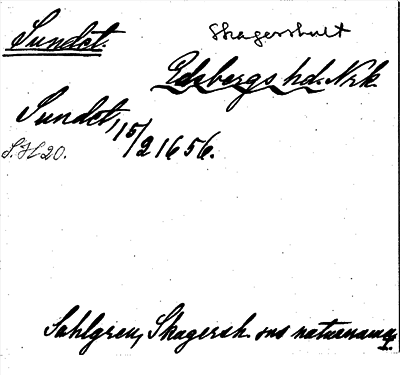 Sundet.
Skagershult
Edsbergs hd. Nrk.
Sundet, 15/2 1656.
S. H. 20.
Sahlgren, Skagersh. sns naturnamn